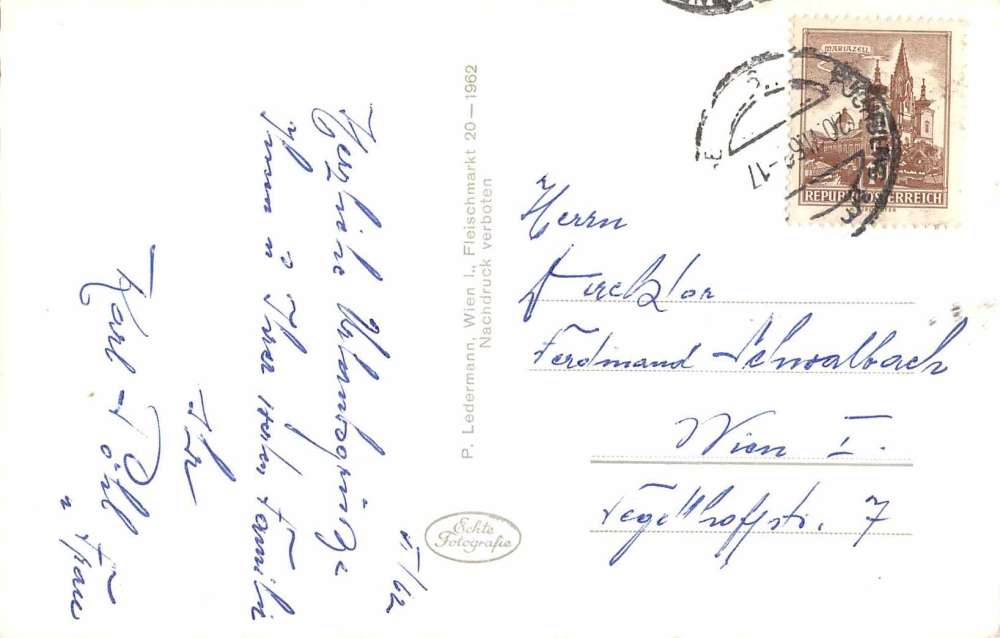 Herzliche Urlaubsgrüße
Ihnen u Ihrer werten Familie
Ihr
Karl Pöhl
u Frau
P. Ledermann, Wien I., Fleischmarkt 20—1962
Nachdruck verboten
Echte
Fotografie
MARIAZELL
REPUBLIK ÖSTERREICH
Herrn
Direktor
Ferdinand Schwalbach
Wien I.
Tegetthoffstr. 7